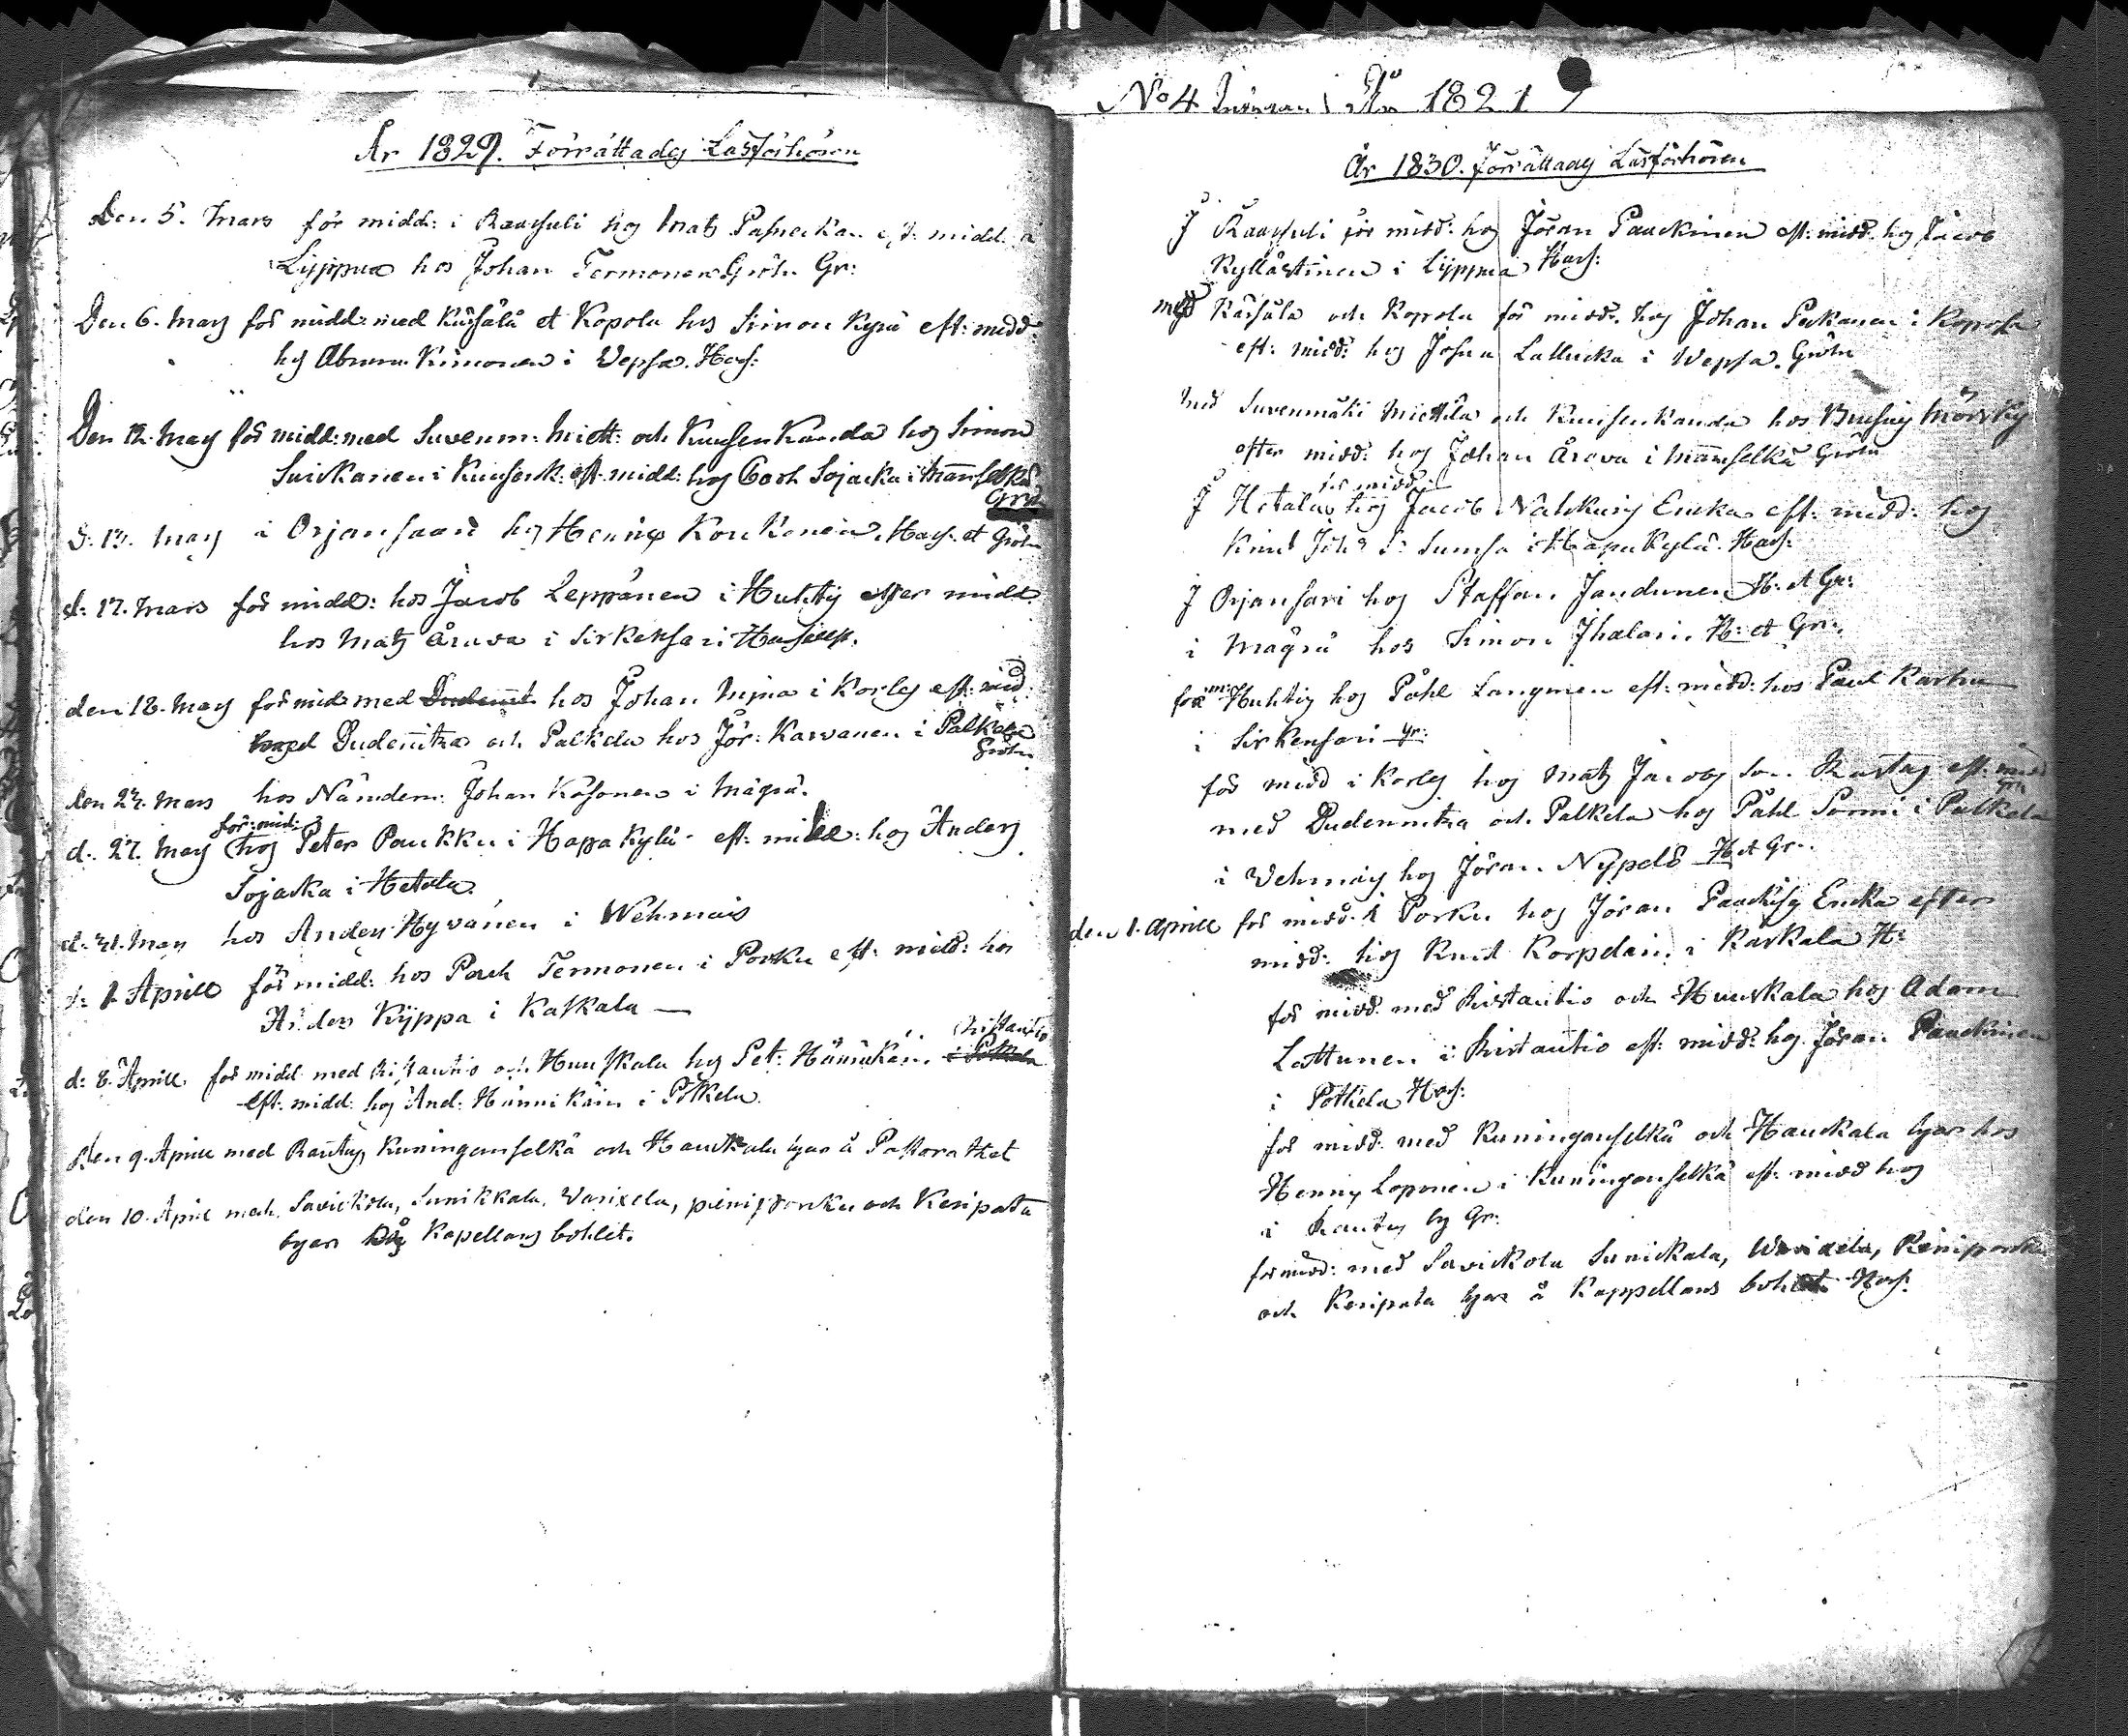 År 1829. Förrättades Läsförhören
Den 5. Mars för midd: i Raasuli hos Mats eft: midd: i
Lijppua hos Johan Termonen Gröhn Gr:
Den 6. Mars för midd: med Käfsälä et Kopola hos Simon Kyrö eft: midd:
hos Abram Kimonen i Wepsa. Hass:
Den 12. Mars för midd: med Suvenm: Miett: och Kuusenkanda hos Simon
Suikanen i Kuusenk: eft. midd: hos Sojacka i Mannselkä
Gröh
d: 13. Mars i Orjansaari hos Henric Konkonen. Hass. et Gröhn
d: 17. Mars för midd: hos Jacob Leppänen i Huhtis efter midd:
hos Matz Årava i Sirkensari
den 18. Mars för midd med Dudemit hos Johan i Korleg eft: midd:
Dudemitza och Palkela hos Jör: Karvanen i Palkela
Gröhn
den 24. Mars hos Nämdem: Johan Käsonen i Mägrä.
för: mid:
d. 27. Mars hos Peter Paukku i Hapakylä eft: midd: hos Anders
Sojacka i Hetola.
d: 31. Mars hos Anders Hyvönen i Wehmais
d: 1. Aprill för midd: hos Termonen i Porku eft: midd: hos
Anders Kyppa i Kaskala —
Ristautio
d: 8. Aprill för midd med Ristautio och Huuskala hos Pet: Hännikäin. i Pötkela
Eft. midd: hos And: Hännikäin i Pötkela.
Den 9. Aprill med Rautus, Kuninganselkä och Hauckala byar å Pastorathet
den 10. April med Savickola, Sunikkala, Varixela, pieniporku och Keripata
byar På Kapellans bohlet.
No 4 År 1821
År 1830. Förrättades Läsförhören
I Raasuli för midd: hos Jöran Pauckinen eft: midd. hos Jacob
Kyllästinen i Lijppua Hass:
med Käfsälä och Kopola för midd. hos Johan Pekanen i Kopola
eft: midd: hos Johan Lallucka i Wepsa. Gröhn
Med Suvenmäki Miettilä och Kuusenkanda hos Mörsky
efter midd: hos Johan Årava i Mannselkä Gröhn
för midd:
I Hetola hos Jacob Encka eft: midd: hos
Knut i Hapakylä. Hass:
I Orjansari hos Staffan Jandunen H: et Gr:
i Mägrä hos Simon Ihalain. H: et Gr:
för m: Huhtis hos Påhl eft: midd: hos Paul Karhu
i Sirkensari Gr:
för midd i Korleg hos Matz Jacobs son eft: midd
Gr:
med Dudemitza och Palkela hos Påhl Sormi i Palkela
i Wehmais hos Jöran Nypelö H et Gr:
den 1. Aprill för midd. i Porku hos Jöran Encka efter
midd: hos Knut Korpelain. i Kaskala H:
för midd med Ristautio och Huuskala hos Adam
Lattunen i Ristautio eft: midd: hos Jöran Pauckinen
i Pötkela Hass:
för midd: med Kuninganselkä och Hauckala byar hos
Henric Loponen i Kuninganselkä eft: midd hos
i Rautus by Gr:
för midd: med Savickola Sunickala, Warixela, Pieniporku
och Keripata byar å Kappellans bohlet Hass: